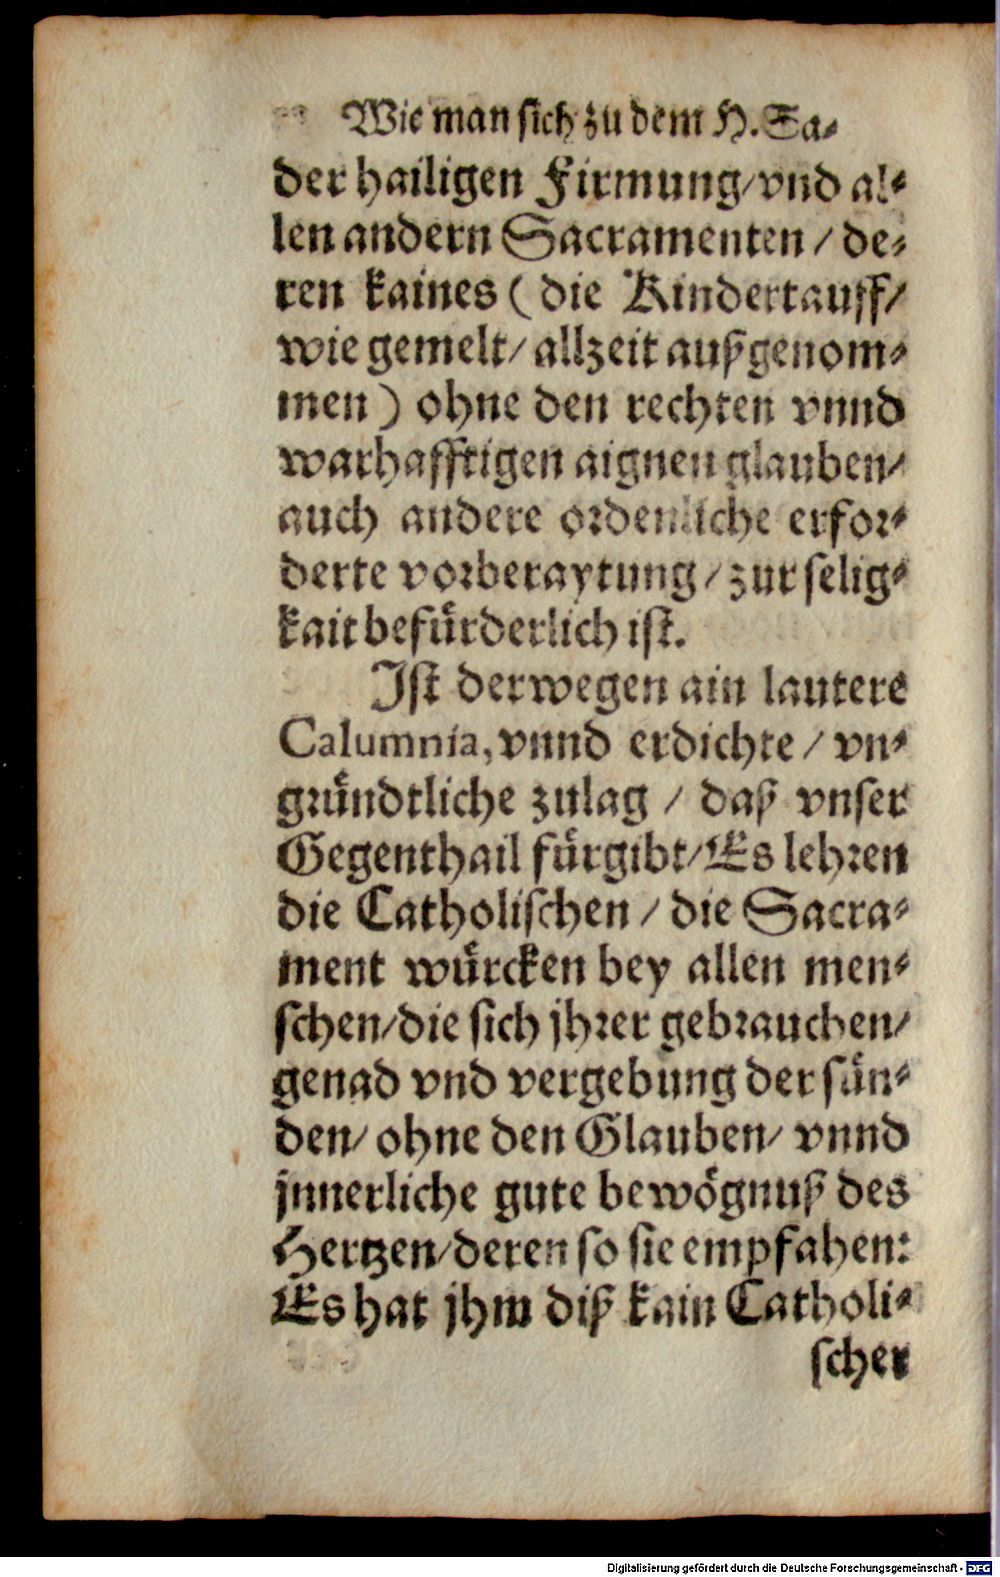 Wie man sich zu dem H. Sa⸗
der hailigen Firmung/vnd al⸗
len andern Sacramenten / de⸗
ren kaines ( die Kindertauff/
wie gemelt/ allzeit außgenom⸗
men ) ohne den rechten vnnd
warhafftigen aignen glauben/
auch andere ordenliche erfor⸗
derte vorberaytung / zur selig⸗
kait befürderlich ist.
Ist derwegen ain lautere
Calumnia, vnnd erdichte / vn⸗
gründtliche zulag / daß vnser
Gegenthail fürgibt/ Es lehren
die Catholischen / die Sacra⸗
ment würcken bey allen men⸗
schen/die sich jhrer gebrauchen/
genad vnd vergebung der sün⸗
den/ ohne den Glauben/ vnnd
jnnerliche gute bewögnuß des
Hertzen/deren so sie empfahen:
Es hat jhm diß kain Catholi⸗
scher
Digitalisierung gefördert durch die Deutsche Forschungsgemeinschaft - DFG